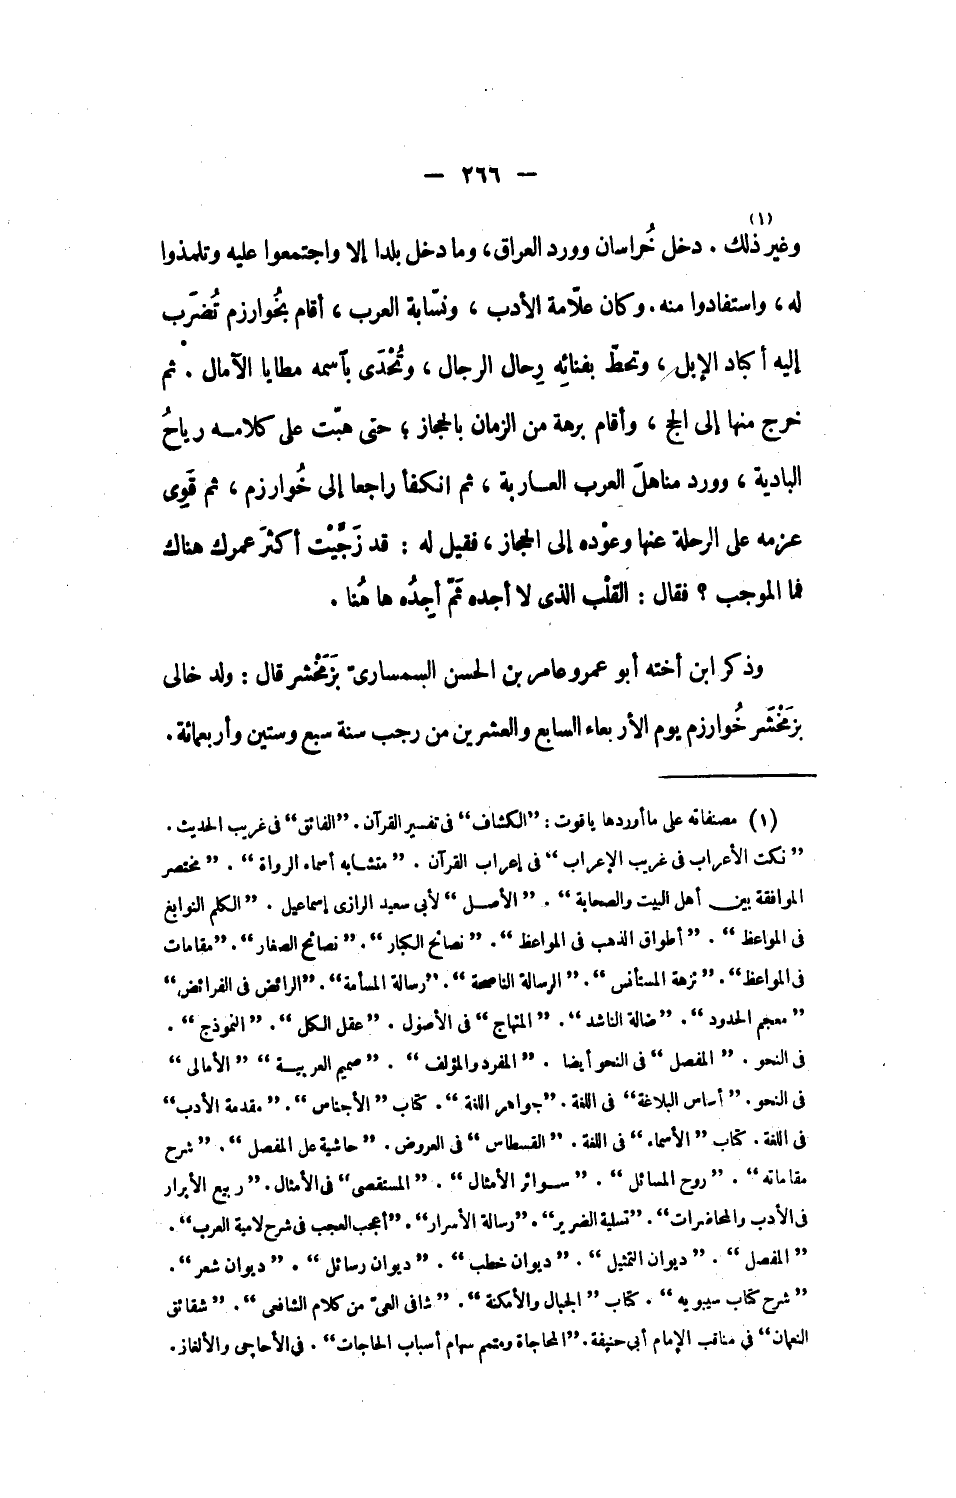 — ٢٦٦ —
وغير ذلك (١) . دخل خُراسان وورد العراق، وما دخل بلدا إلا واجتمعوا عليه وتلمذوا
له، واستفادوا منه. وكان علّامة الأدب ، ونسّابة العرب ، أقام بخُوارزم تُضرَب
إليه أكباد الإبل، وتحطّ بفنائه رِحال الرجال ، وتُحْدَى بآسمه مطايا الآمال . ثم
خرج منها إلى الحج ، وأقام برهة من الزمان بالحجاز ؛ حتى هبّت على كلامه رياحُ
البادية ، وورد مناهلَ العرب العاربة ، ثم انكفأ راجعا إلى خُوارزم ، ثم قَوِى
عزمه على الرحلة عنها وعوْده إلى الحجاز، فقيل له : قد زَجَّيْت أكثرَ عمرك هناك
فما الموجب ؟ فقال : القلْب الذى لا أجده ثَمّ أجِدُه ها هُنا .
وذكر ابن أخته أبو عمرو عامر بن الحسن السمسارىّ بزَمَخْشر قال : ولد خالى
بزَمَخْشَر خُوارزم يوم الأربعاء السابع والعشرين من رجب سنة سبع وستين وأربعمائة.
(١) مصنفاته على ما أوردها ياقوت : "الكشاف" فى تفسير القرآن. "الفائق" فى غريب الحديث .
"نكت الأعراب فى غريب الإعراب" فى إعراب القرآن . "متشابه أسماء الرواة" . "مختصر
الموافقة بين أهل البيت والصحابة" . "الأصل" لأبى سعيد الرازى إسماعيل . "الكلم النوابغ
فى المواعظ" . "أطواق الذهب فى المواعظ". "نصائح الكبار". "نصائح الصغار". "مقامات
فى المواعظ". "نزهة المستأنس". "الرسالة الناصحة". "رسالة المسأمة". "الرائض فى الفرائض"
"معجم الحدود". "ضالة الناشد". "المنهاج" فى الأصول . "عقل الكل". "النموذج" .
فى النحو . "المفصل" فى النحو أيضا . "المفرد والمؤلف" . "صميم العربية" "الأمالى"
فى النحو. "أساس البلاغة" فى اللغة . "جواهر اللغة". كتاب "الأجناس". "مقدمة الأدب"
فى اللغة. كتاب "الأسماء" فى اللغة. "القسطاس" فى العروض. "حاشية على المفصل". "شرح
مقاماته" . "روح المسائل" . "سوائر الأمثال" . "المستقصى" فى الأمثال. "ربيع الأبرار
فى الأدب والمحاضرات". "تسلية الضرير". "رسالة الأسرار". "أعجب العجب فى شرح لامية العرب".
"المفصل" . "ديوان التمثيل" . "ديوان خطب" . "ديوان رسائل" . "ديوان شعر".
"شرح كتاب سيبويه" . كتاب "الجبال والأمكنة". "شافى العىّ من كلام الشافعى". "شقائق
النعمان" فى مناقب الإمام أبى حنيفة. "المحاجاة ومتمم سهام أسباب الحاجات" . فى الأحاجى والألغاز.